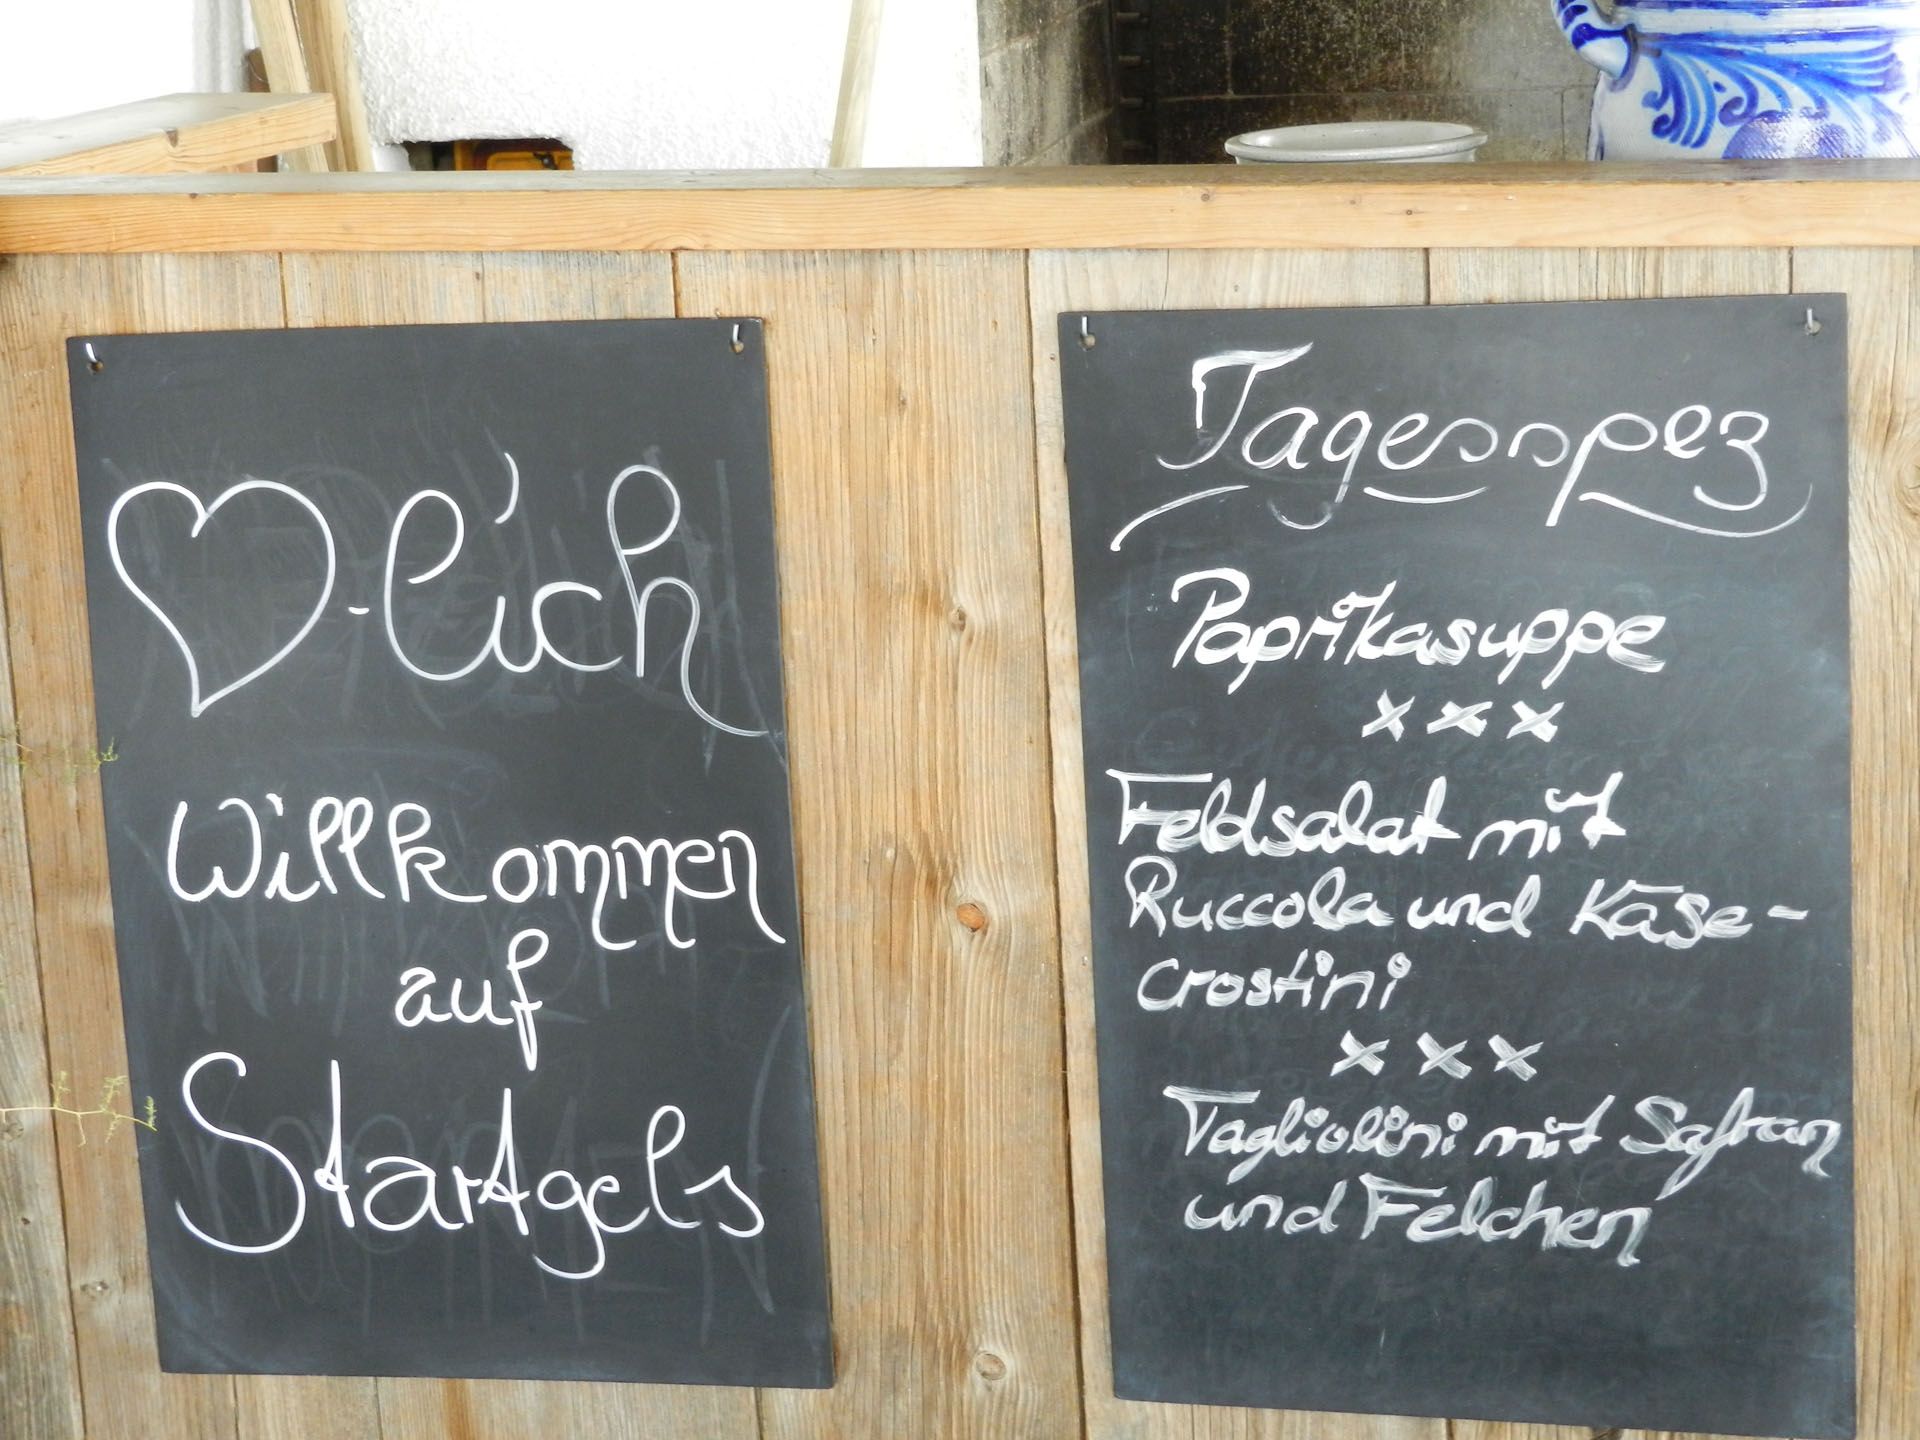 ♡-lich
Willkommen
auf
Startgels
Tagesspez
Paprikasuppe
x x x
Feldsalat mit
Ruccola und Käse-
crostini
x x x
Tagliolini mit Safran
und Felchen